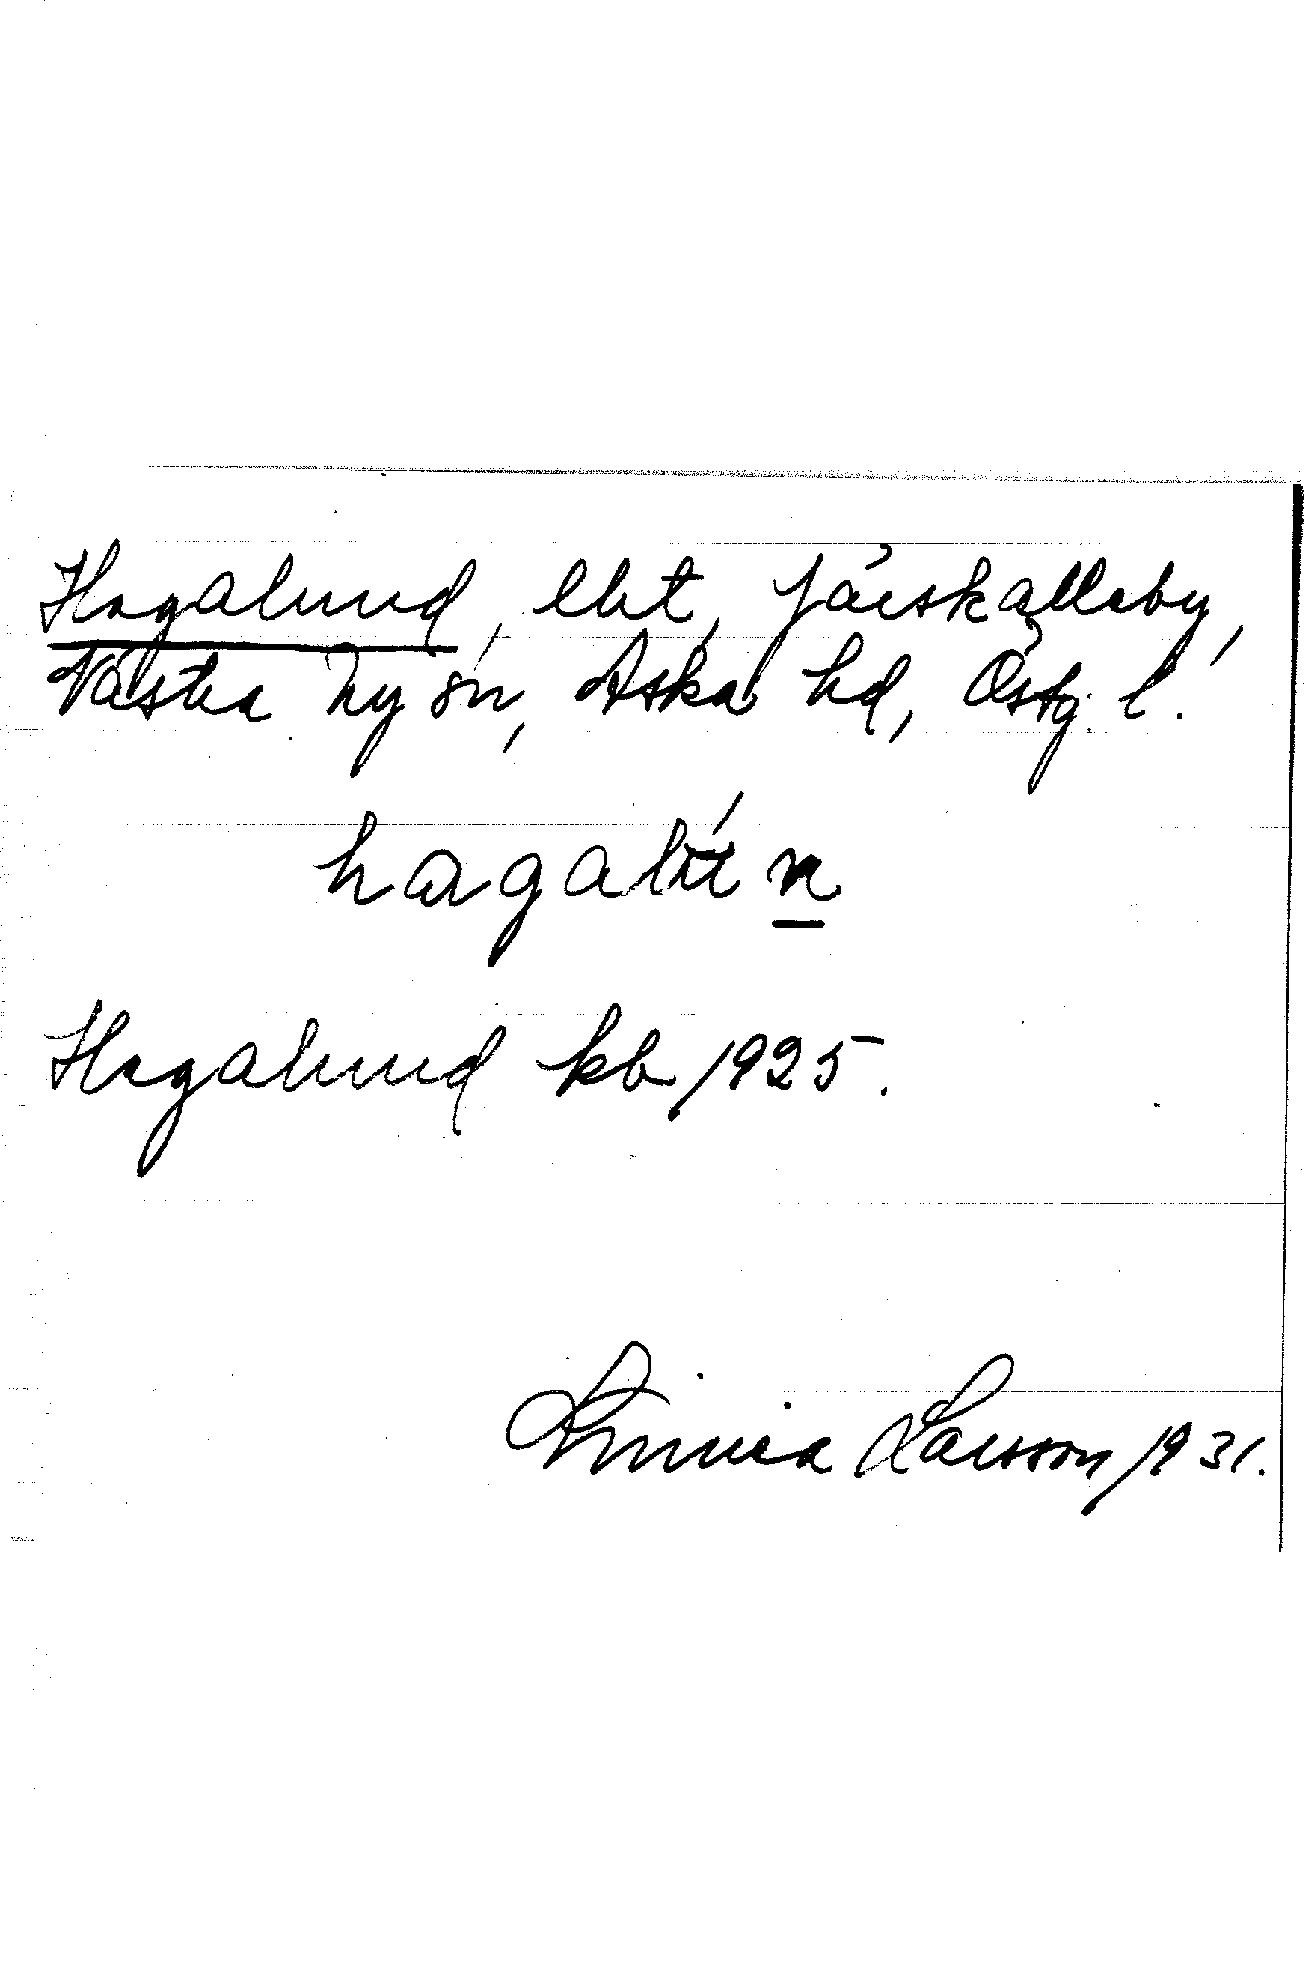 Hagalund, lht, Järskälleby,
Västra Ny sn, Aska hd, Östg. l.
Hagalund kb 1925.
Linnea Larsson 1931.